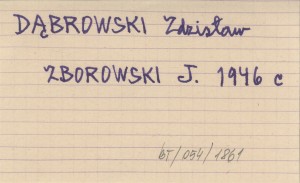 DĄBROWSKI Zdzisław
ZBOROWSKI J. 1946 c
BT/054/1861